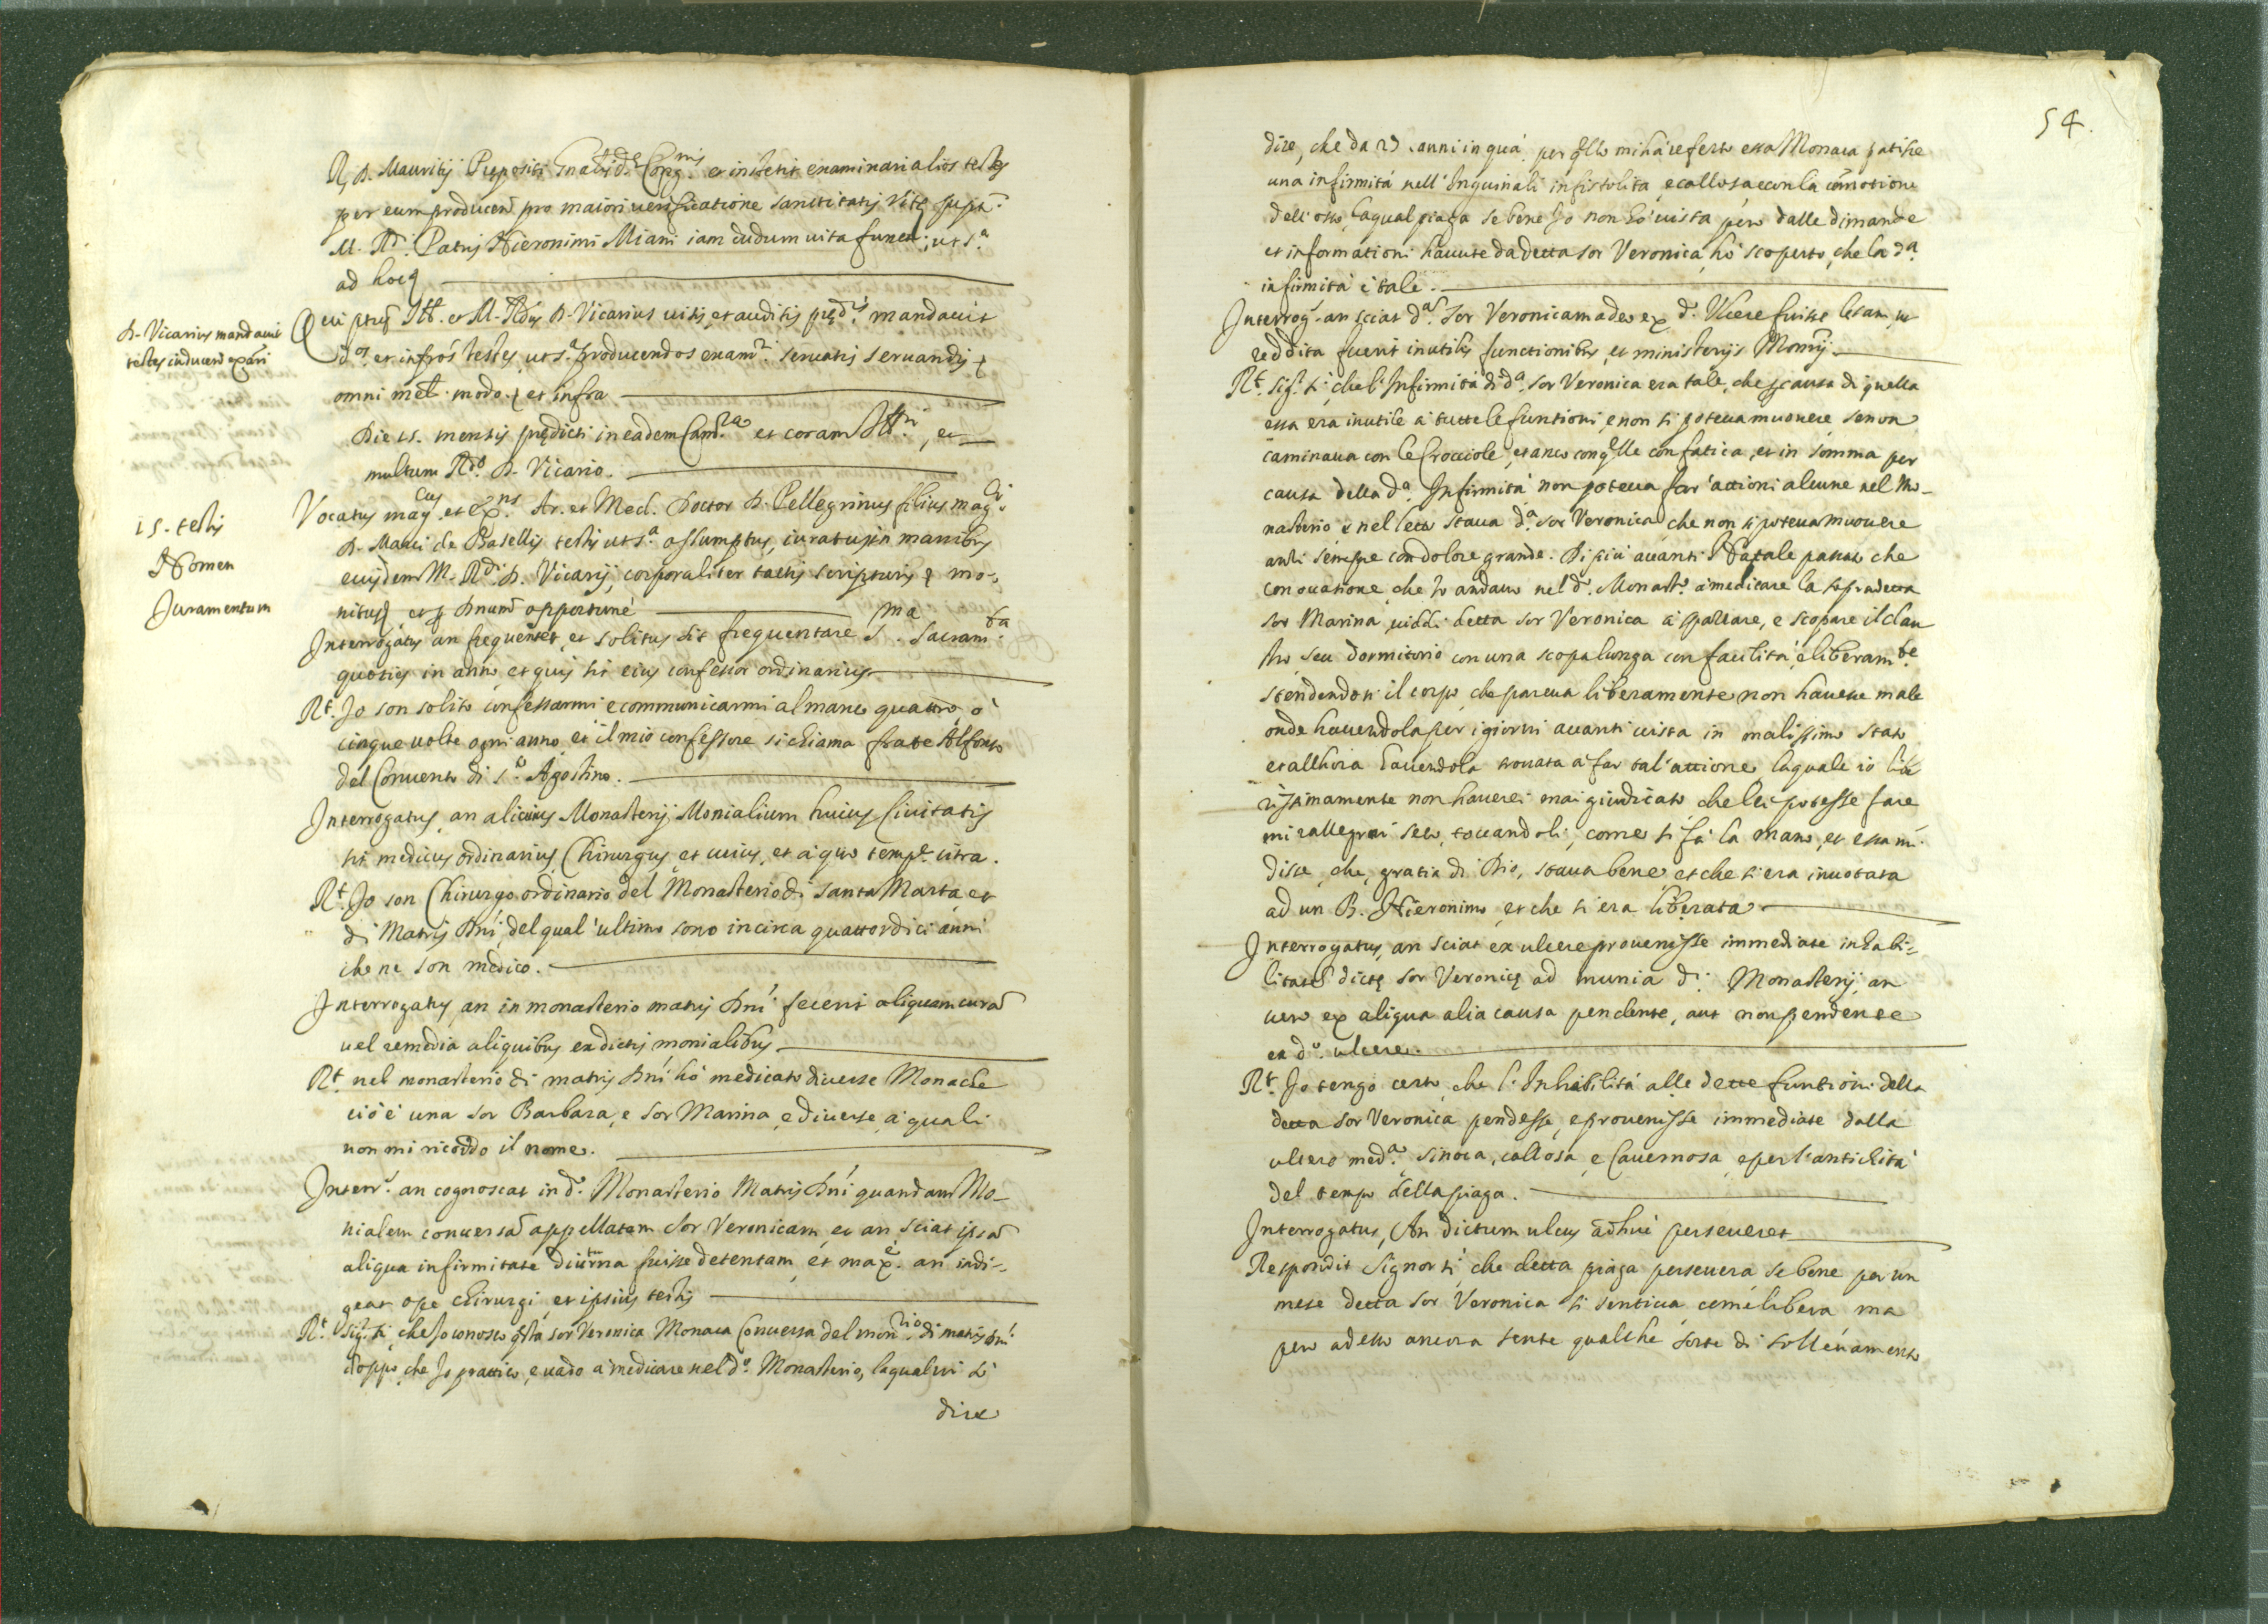 R. D. Mauritij Prepositi Gnalis d. Congnis et institit examinari alios testes
per eum producen pro maiori uerificatione sanctitatis Vitę supti
M. Rdi Patris Hieronimi Miani iam dudum uita functi, ut sa
ad hoc
Qui ptus Ill. et M. Rdus D. Vicarius uisis, et auditis pędis mandauit
dos et infros testes, ut sa producendos exami seruatis seruandis
omni mel. modo et infra
D. Vicarius mandauit
testes inducend exāri
Die 15. mensis prędicti in eadem Camra et coram Illri, et
multum Rdo D. Vicario.
15. testis
Nomen
Juramentum
Vocatus magcus et exns Ar. et Med. Doctor D. Pellegrinus filius magci
D. Marci de Basellis testis ut sa assumptus, iuratus in manibus
eiusdem M. Rdi D. Vicarij, corporaliter tactis scripturis mo-
nitus opportunè
Interrogatus an frequentet, et solitus sit frequentare Sma Sacramta
quoties in anno, et quis sit eius confessor ordinarius
Rt. Jo son solito confessarmi e communicarmi almanco quattro, ò
cinque uolte ogni anno, et il mio confessore si chiama frate Alfonso
del Conuento di Sto Agostino.
Interrogatus, an alicuius Monasterij Monialium huius Ciuitatis
sit medicus ordinarius, Chirurgus et cuius, et à quo tempe citra.
Rt. Jo son Chirurgo ordinario del Monasterio di Santa Marta, et
di Matris Dñi, del qual' ultimo sono incirca quattordici anni
che ne son medico.
Interrogatus an in monasterio matris Dñi fecerit aliquam curā
uel remedia aliquibus ex dictis monialibus
Rt nel monasterio di matris Dñi hò medicato diuerse Monache
ciò è una sor Barbara, e sor Marina, e diuerse, à quali
non mi ricordo il nome.
Interr. an cognoscat in do Monasterio Matris Dñi quandam Mo-
nialem conuersā appellatam Sor Veronicam, et an sciat ipsā
aliqua infirmitate diuturna fuisse detentam, et maxe an indi-
geat ope chirurgi, et ipsius testis
Rt Sigr si, che Jo conosco qsta sor Veronica Monaca Conuersa del monrio di matris Dñi
doppo, che Jo prattico, e uado à medicare nel do Monasterio, la qual mi sà
dire
54.
dire, che da 23. anni in quà, per qllo mi hà referto essa Monaca patisse
una infirmità nell' Inguinali infistolita, e callosa, e con la comotione
dell' osso, la qual piaga se bene Jo non hò uista, però dalle dimande
et informationi hauute da detta sor Veronica, hò scoperto, che la da
infirmità è tale.
Interrog. an sciat dam Sor Veronicam adeo ex do Vlcere fuisse lesam, ut
reddita fuerit inutilis functionibus, et ministerijs Monrij
Rt. sigr si, che l'Infirmità di da sor Veronica era tale, che p causa di quella
essa era inutile à tutte le funtioni, e non si poteua muouere se non
caminaua con le Crocciole, et anco con qlle con fatica, et in somma per
causa della da Infirmità non poteua far' attioni alcune nel Mo-
nasterio, e nel letto staua da sor Veronica che non si poteua muouere
anzi sempre con dolore grande. Di più auanti Natale passato che
con occatione, che Jo andauo nel do Monasto à medicare la sopradetta
sor Marina, uiddi detta sor Veronica à spazzare, e scopare il clau
stro, seu dormitorio con una scopa lunga con facilità, e liberamte
stendendosi il corpo, che pareua liberamente non hauesse male
onde hauendola per i giorni auanti uista in malissimo stato
et allhora hauendola trouata à far tal' attione, la quale io libe
rissimamente non hauerei mai giudicato che lei potesse fare
mi rallegrai seco, toccandoli, come si fà la mano, et essa mi
disse, che, gratia di Dio, staua bene, et che si era inuotata
ad un B. Hieronimo, et che si era liberata
Interrogatus, an sciat ex ulcere prouenisse immediate inhabi-
litatē dictę sor Veronicę ad munia di Monasterij, an
uero ex aliqua alia causa pendente, aut non pendente
ex do ulcere.
Rt. Jo tengo certo, che l'Inhabilità alle dette funtioni della
detta sor Veronica pendesse, e prouenisse immediate dalla
ulcero meda sinosa, callosa, e Cauernosa, e per l'antichità
del tempo della piaga.
Interrogatus, An dictum ulcus adhuc perseueret
Respondit Signor si, che detta piaga perseuera, se bene per un
mese detta sor Veronica si sentiua come libera ma
però adesso ancora sente qualche sorte di solleuamento